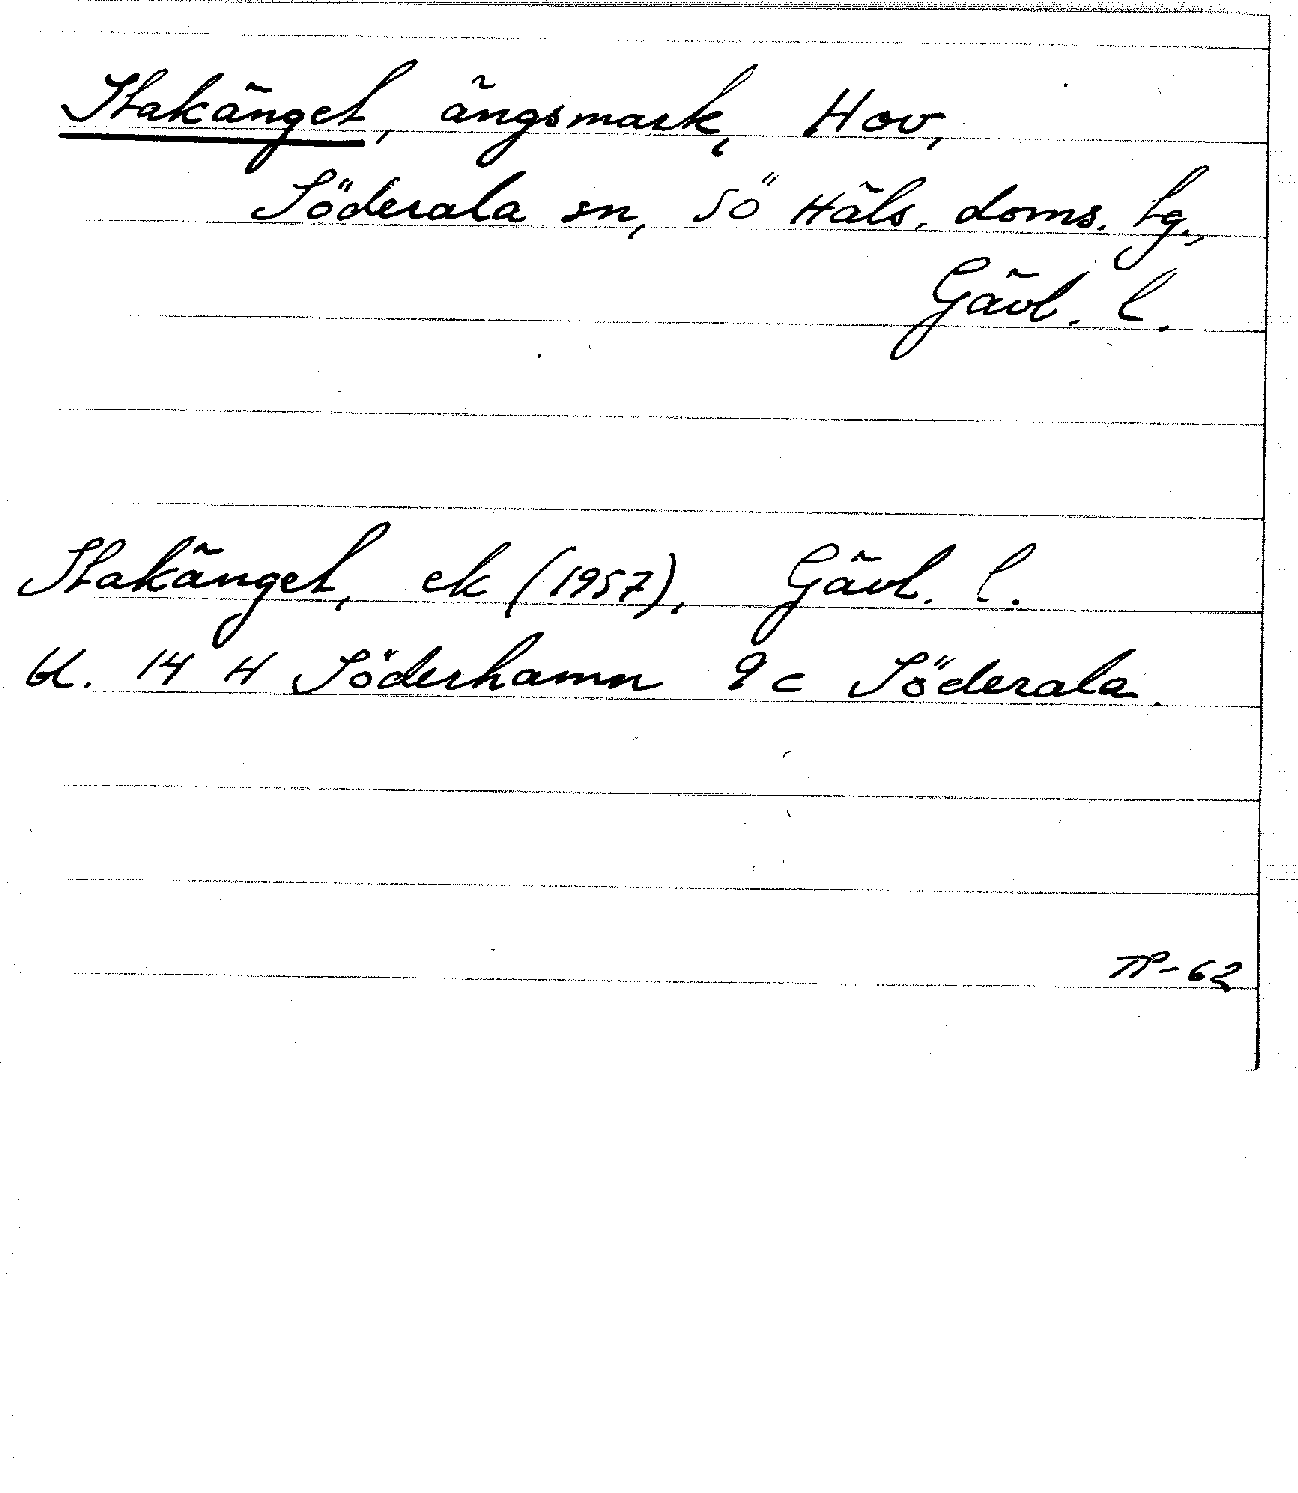 Stakänget, ängsmark, Hov,
Söderala sn, Sö Häls. doms. tg.,
Gävl. l.
Stakänget, ek (1957), Gävl. l.
bl. 14 H Söderhamn 9 c Söderala.
TP-62